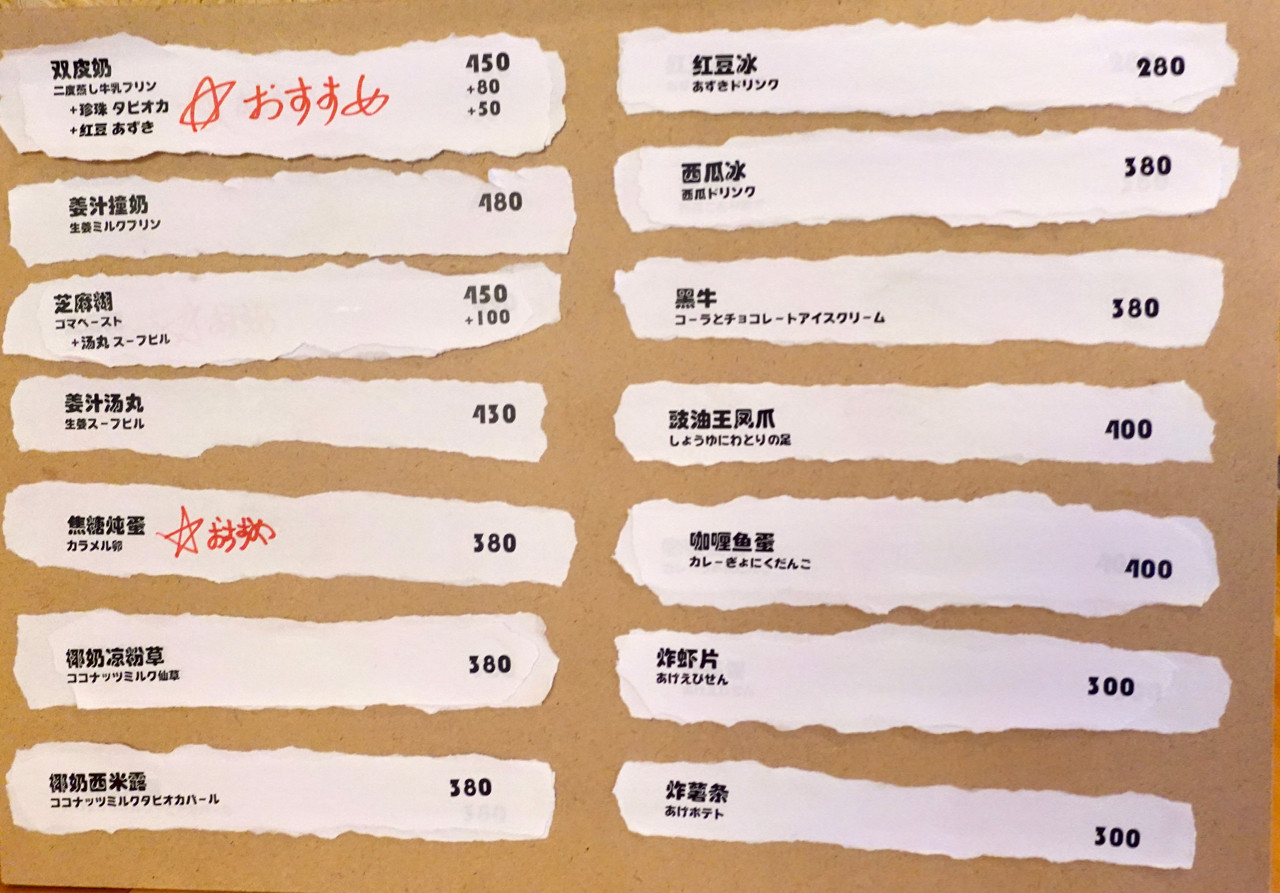 双皮奶 450
二度蒸し牛乳プリン +80
+珍珠 タピオカ +50
+红豆 あずき
☆おすすめ
姜汁撞奶 480
生姜ミルクプリン
芝麻糊 450
ゴマペースト +100
+汤丸 スープビル
姜汁汤丸 430
生姜スープビル
焦糖炖蛋 ☆おすすめ 380
カラメル卵
椰奶凉粉草 380
ココナッツミルク仙草
椰奶西米露 380
ココナッツミルクタピオカパール
红豆冰 280
あずきドリンク
西瓜冰 380
西瓜ドリンク
黑牛 380
コーラとチョコレートアイスクリーム
豉油王凤爪 400
しょうゆにわとりの足
咖喱鱼蛋 400
カレーぎょにくだんご
炸虾片 300
あげえびせん
炸薯条 300
あげポテト